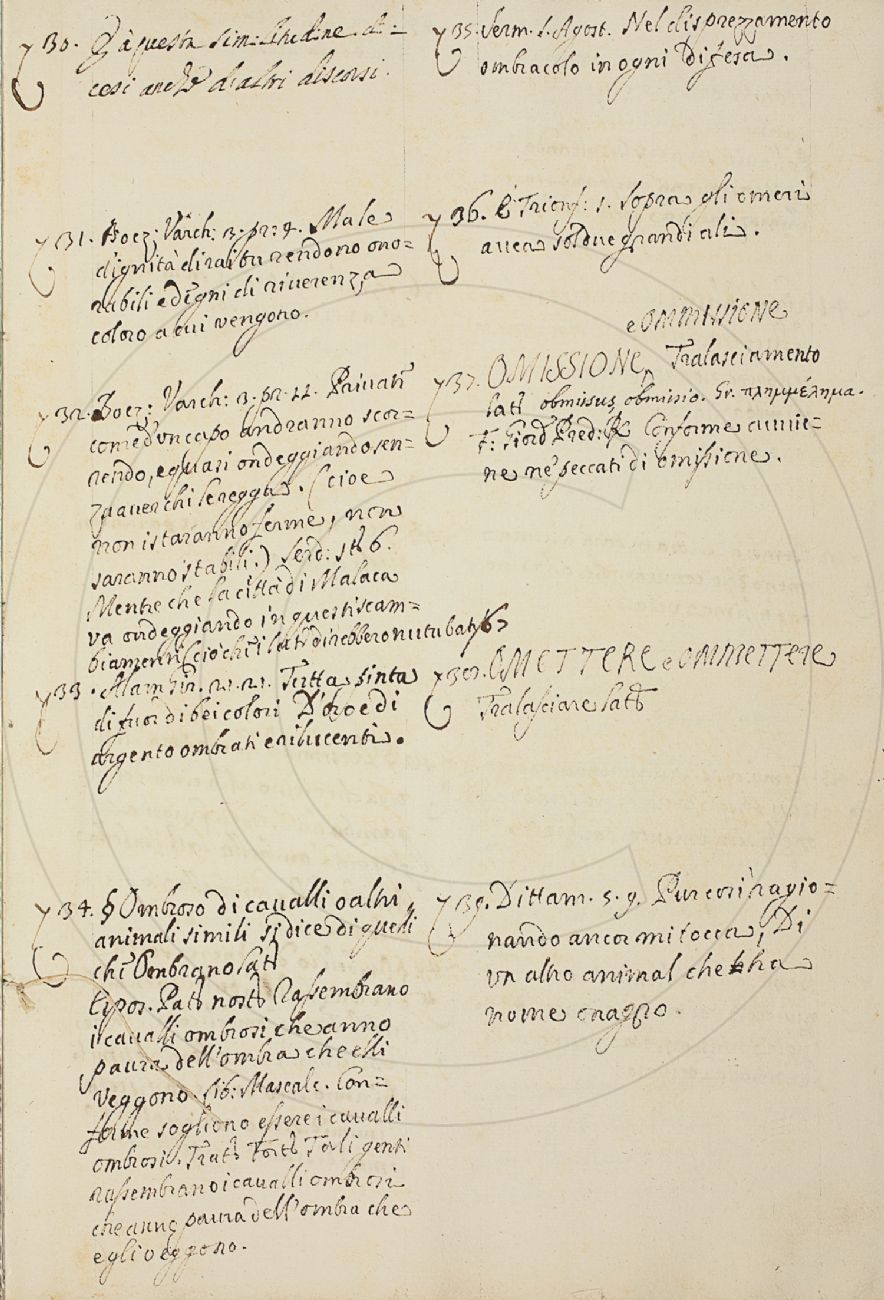 30. E à questa similitudine di-
cesi anche di altri discorsi.
31. Boez: Varch: 3. pr: 4. Male
dignità di rai tu rendono ono=
rabili e degni di riverenza
coloro a cui vengono.
32. Boez: Varch: 3. pr. 11. Privati
come d'un capo andranno scor=
rendo, e quasi ondeggiando sen=
za aver chi le regga. (cioe
non istaranno ferme, non
saranno stabili.) Serd: st. 6.
Mentre che la città di Malaca
va ondeggiando in questi scam=
biamenti
33. Alam. Gir. 21. 21. Tutta finta
di fuor di bei colori D'oro e di
argento ombrati e rilucenti.
34. § Ombroso di cavalli o altri
animali simili si dice di quelli
che Ombrano Lat.
Espos. Pat. nost. Rassembrano
i cavalli ombrosi che anno
paura dell'ombra che elli
veggono. Lib: Mascalc. Con=
forme sogliono essere i cavalli
ombrosi. Tratt. Fort. Tali genti
rassembrano i cavalli ombrosi
che anno paura dell'ombra che
egli veggono.
35. Serm. S. Agost. Nel disprezzamento
ombracolo in ogni Difesa.
36. Trionf: 1. Sopra gli omeri
avea sol due grandi ali.
e OMMISSIONE
37. OMISSIONE Tralasciamento
Lat. obmissus, obmissio. Gr. πλημμέλημα.
F: Giord. Pred: R. Conforme avvie=
ne ne' peccati di omissione.
38. OMETTERE e OMMETTERE
Tralasciare Lat.
39. Dittam. 5. 9. Pur così ragio=
nando ancor mi tocca, Di
un altro animal che ha
nome onagro.